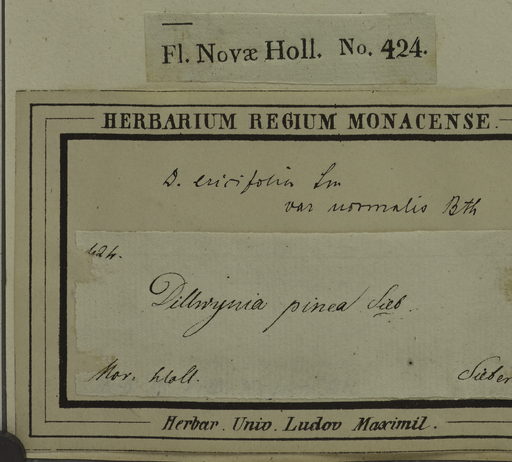 Fl. Novæ Holl. No. 424.
HERBARIUM REGIUM MONACENSE.
D. ericifolia Sm
var normalis Bth
424.
Dillwynia pinea Sieb.
Nov. Holl.
Sieber
Herbar. Univ. Ludov Maximil.